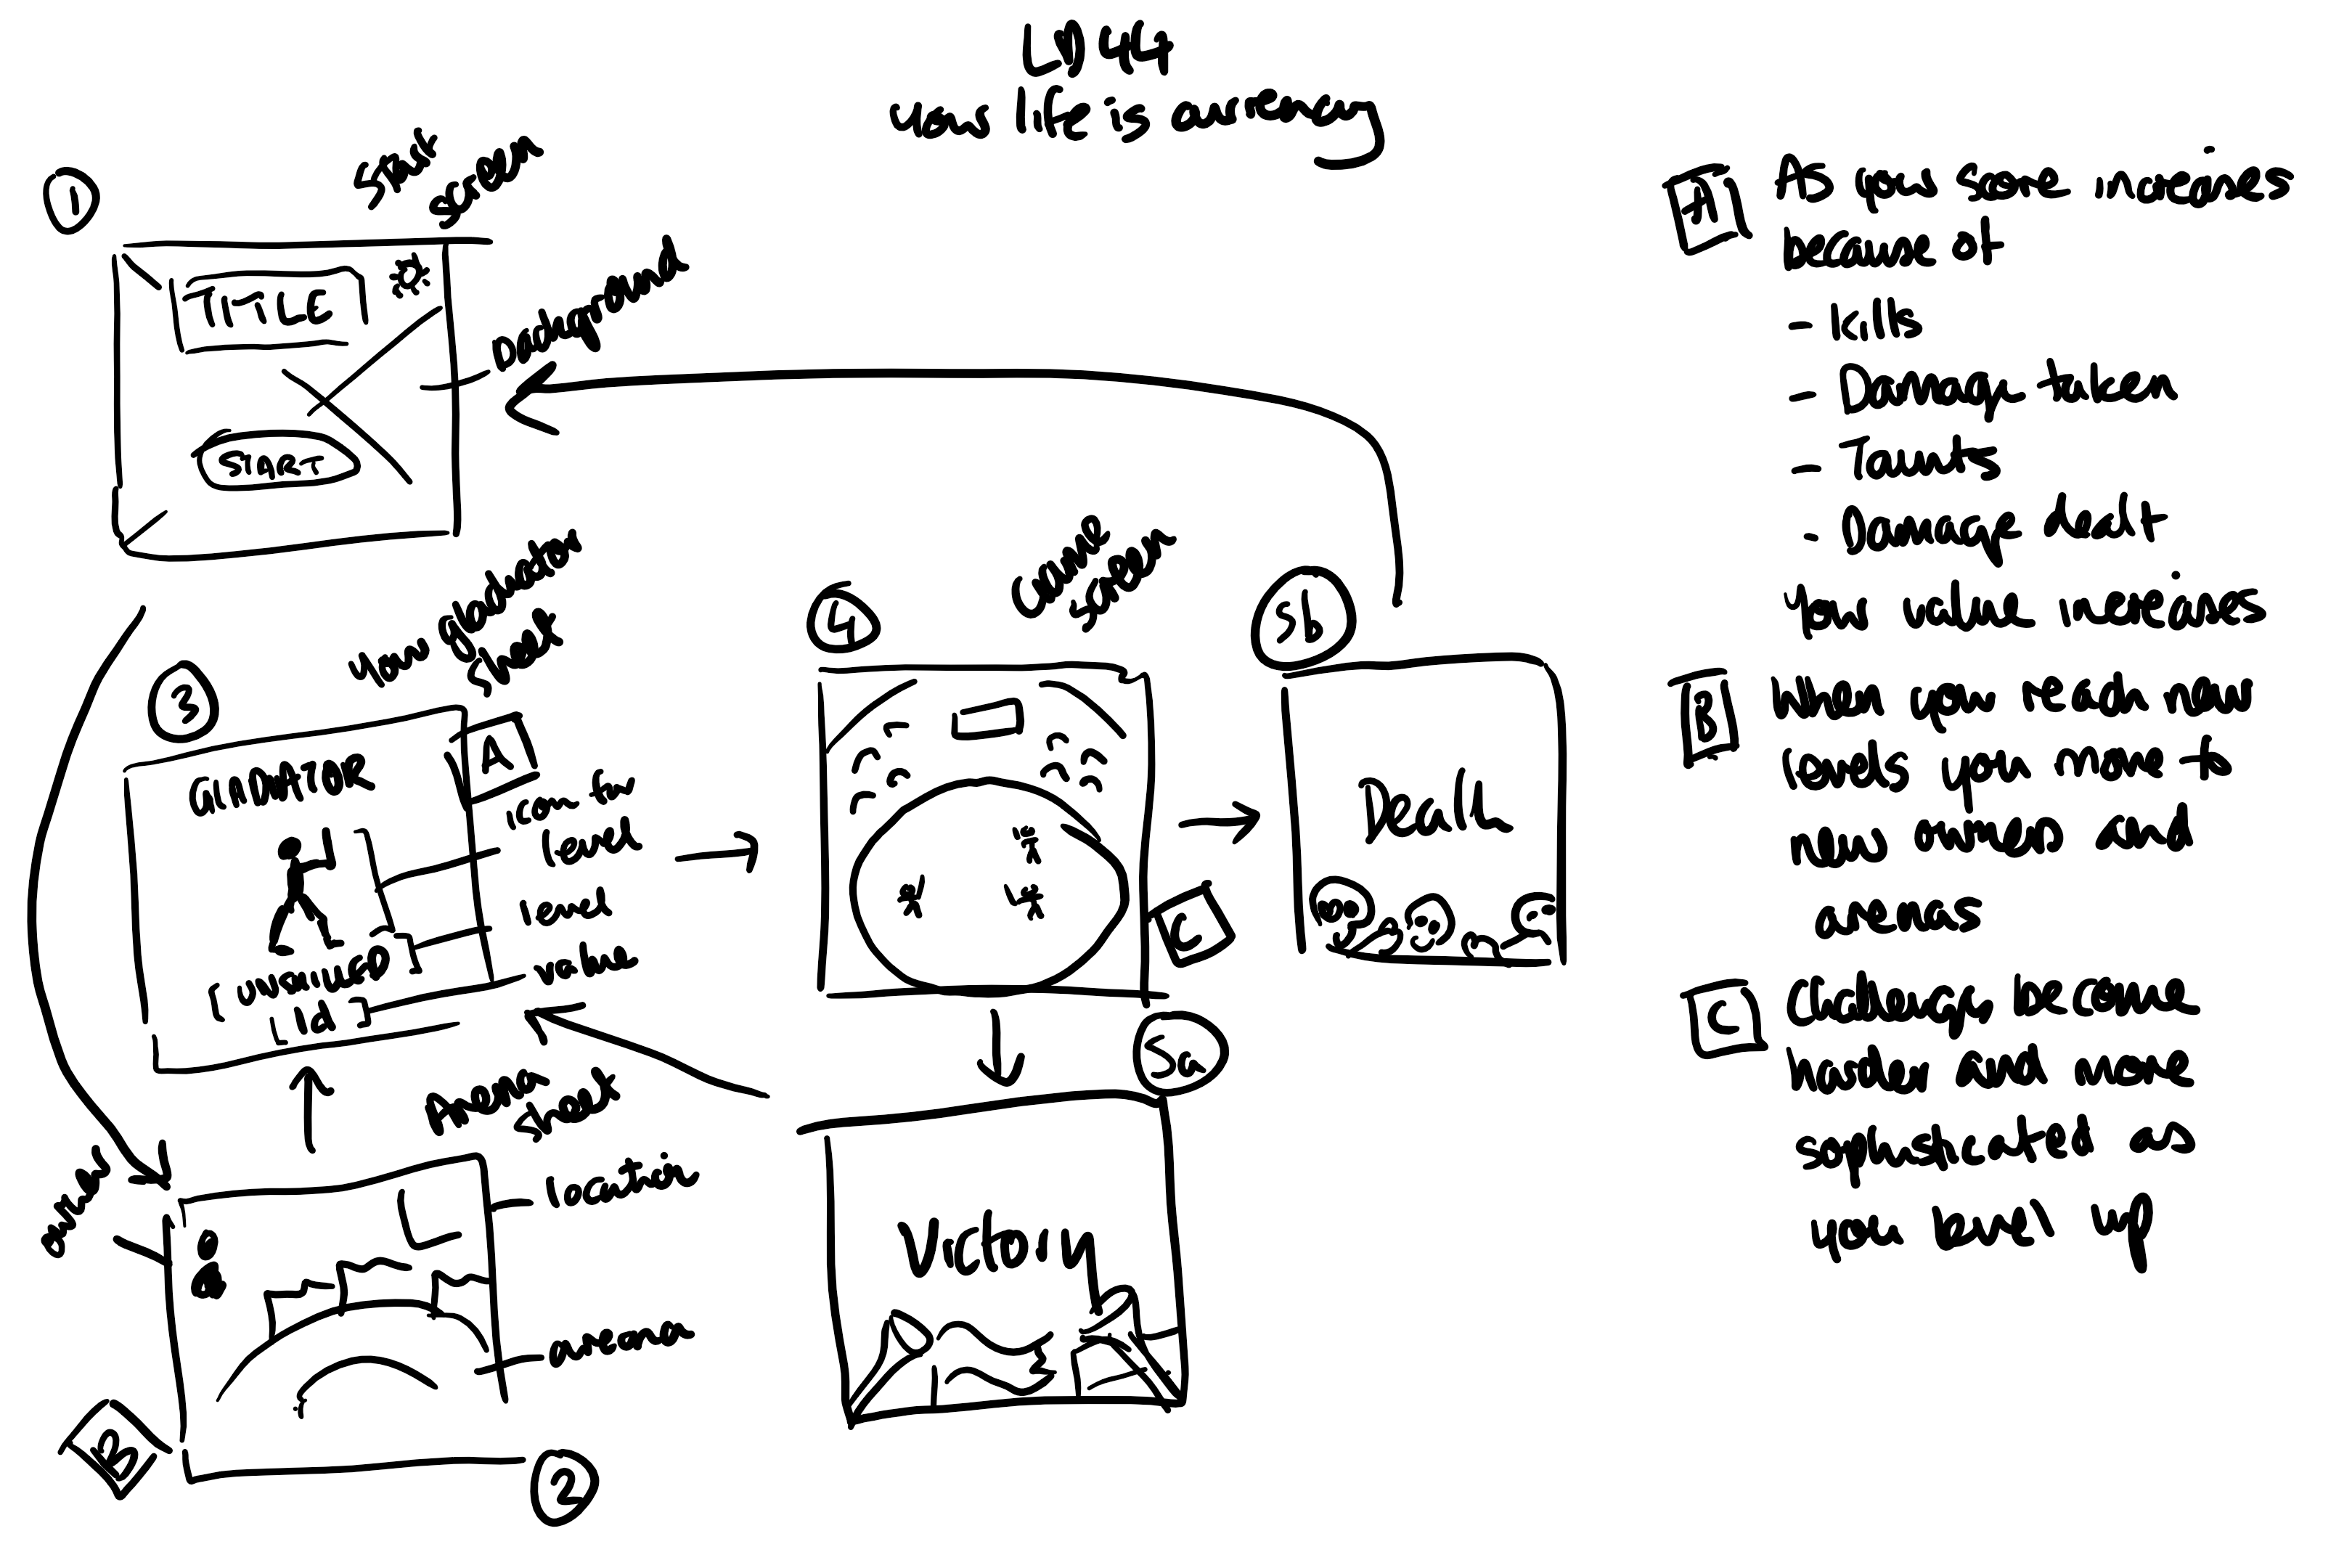 LD 44
your life is currency
1
Start
screen
TITLE
START
Background
3
your gladiator
sheet
GLADIATOR
A
can for
level
value
4
Game
5b
Death
C
5a
Victory
sheet
location
arena
B
2
A
As your score increases
because of
- kills
- Damage taken
- Taunts
- Damage dealt
Your value increases
B
When you reach new
levels you move to
new owners and
arenas
C
Challenges become
harder and more
sophisticated as
you level up